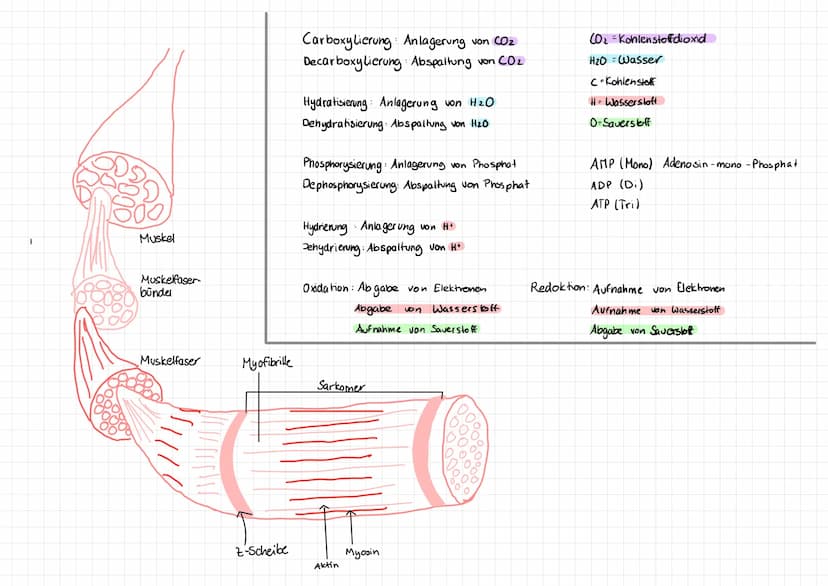 Carboxylierung: Anlagerung von CO2
Decarboxylierung: Abspaltung von CO2
Hydratisierung: Anlagerung von H2O
Dehydratisierung: Abspaltung von H2O
Phosphorysierung: Anlagerung von Phosphat
Dephosphorysierung: Abspaltung von Phosphat
Hydrierung: Anlagerung von H+
Dehydrierung: Abspaltung von H+
Oxidation: Abgabe von Elektronen
Abgabe von Wasserstoff
Aufnahme von Sauerstoff
CO2 = Kohlenstoffdioxid
H2O = Wasser
C = Kohlenstoff
H = Wasserstoff
O = Sauerstoff
AMP (Mono) Adenosin-mono-Phosphat
ADP (Di)
ATP (Tri)
Redoktion: Aufnahme von Elektronen
Aufnahme von Wasserstoff
Abgabe von Sauerstoff
Muskel
Muskelfaser-
bündel
Muskelfaser
Myofibrille
Sarkomer
Z-Scheibe
Aktin
Myosin